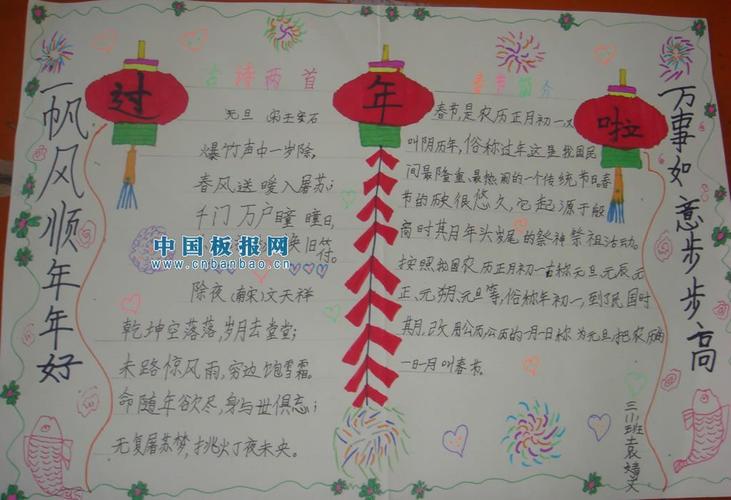 过年啦
一帆风顺年年好
古诗两首
元旦 宋王安石
爆竹声中一岁除,
春风送暖入屠苏;
千门万户曈曈日,
换旧符。
除夜(南宋)文天祥
乾坤空落落,岁月去堂堂;
末路惊风雨,穷边饱雪霜。
命随年欲尽,身与世俱忘;
无复屠苏梦,挑灯夜未央。
春节简介
春节,是农历正月初一,又
叫阴历年,俗称过年这是我国民
间最隆重、最热闹的一个传统节日。春
节的历史很悠久,它起源于殷
商时其月年头岁尾的祭神祭祖活动。
按照我国农历正月初一古称元旦、元辰、元
正、元朔、元旦等,俗称年初一,到了民国时
期,改用公历公历的一月一日称为元旦,把农历的
一日一月叫春节。
万事如意步步高
三小班袁婧文
中国板报网
www.cnbanbao.cn